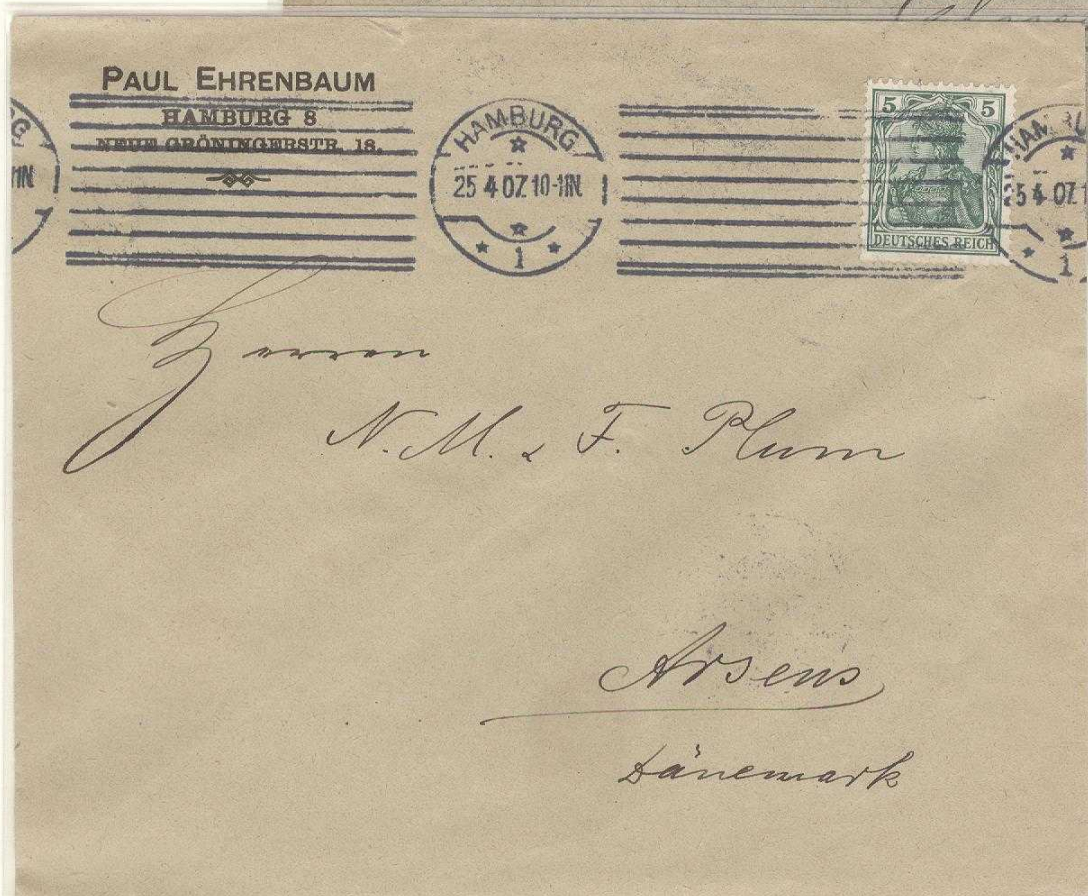 PAUL EHRENBAUM
HAMBURG 8
NEUE GRÖNINGERSTR. 18.
HAMBURG
25 4 07. 10-11N.
1
5 5
DEUTSCHES REICH
HAMBURG
25 4 07. 1
1
G
11N.
Herren
N. M. & F. Plum
Assens
Dänemark